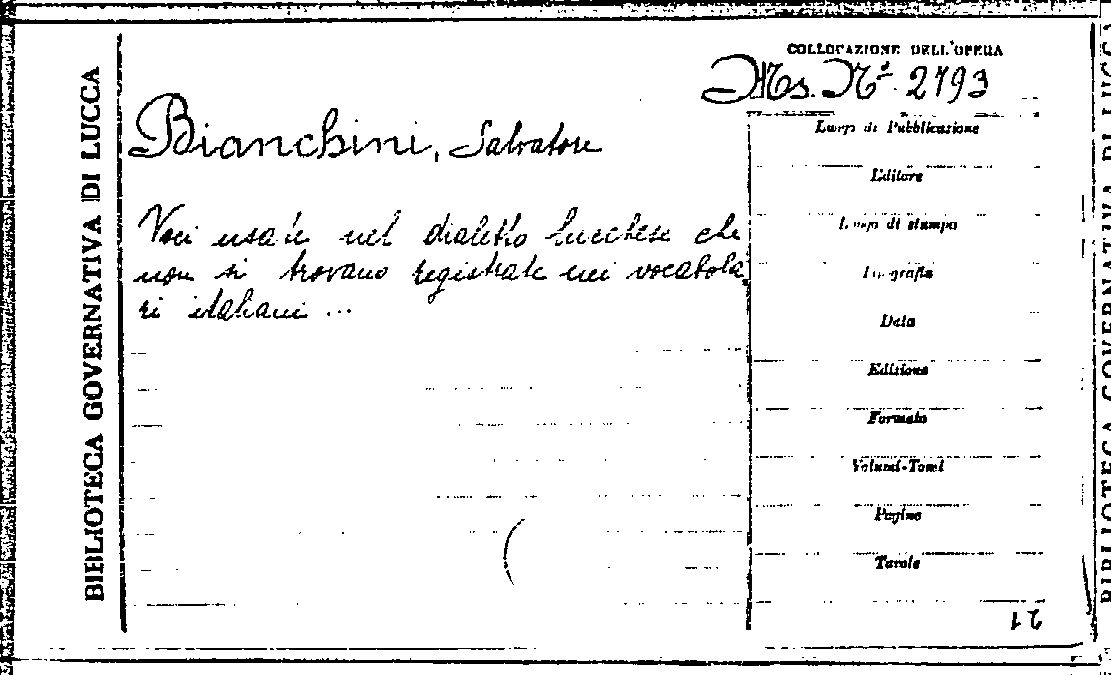 BIBLIOTECA GOVERNATIVA DI LUCCA
COLLOCAZIONE DELL'OPERA
Ms. Nº 2793
Bianchini, Salvatore
Voci usate nel dialetto lucchese che
non si trovano registrate nei vocabola
ri italiani ...
Luogo di Pubblicazione
Editore
Luogo di stampa
Tipografia
Data
Edizione
Formato
Volumi-Tomi
Pagine
Tavole